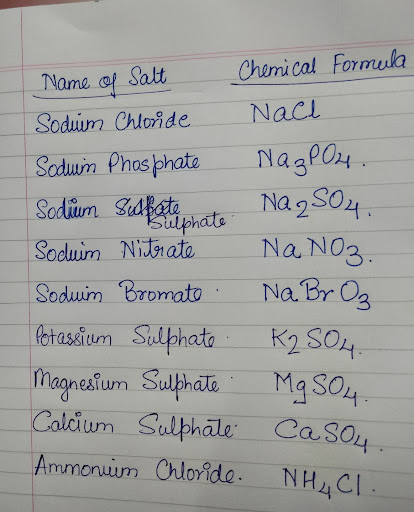 Name of Salt Chemical Formula
Sodium Chloride NaCl
Sodium Phosphate Na3PO4.
Sodium Sulfate Sulphate Na2SO4.
Sodium Nitrate NaNO3.
Sodium Bromate. NaBrO3
Potassium Sulphate. K2SO4.
Magnesium Sulphate. MgSO4.
Calcium Sulphate. CaSO4.
Ammonium Chloride. NH4Cl.